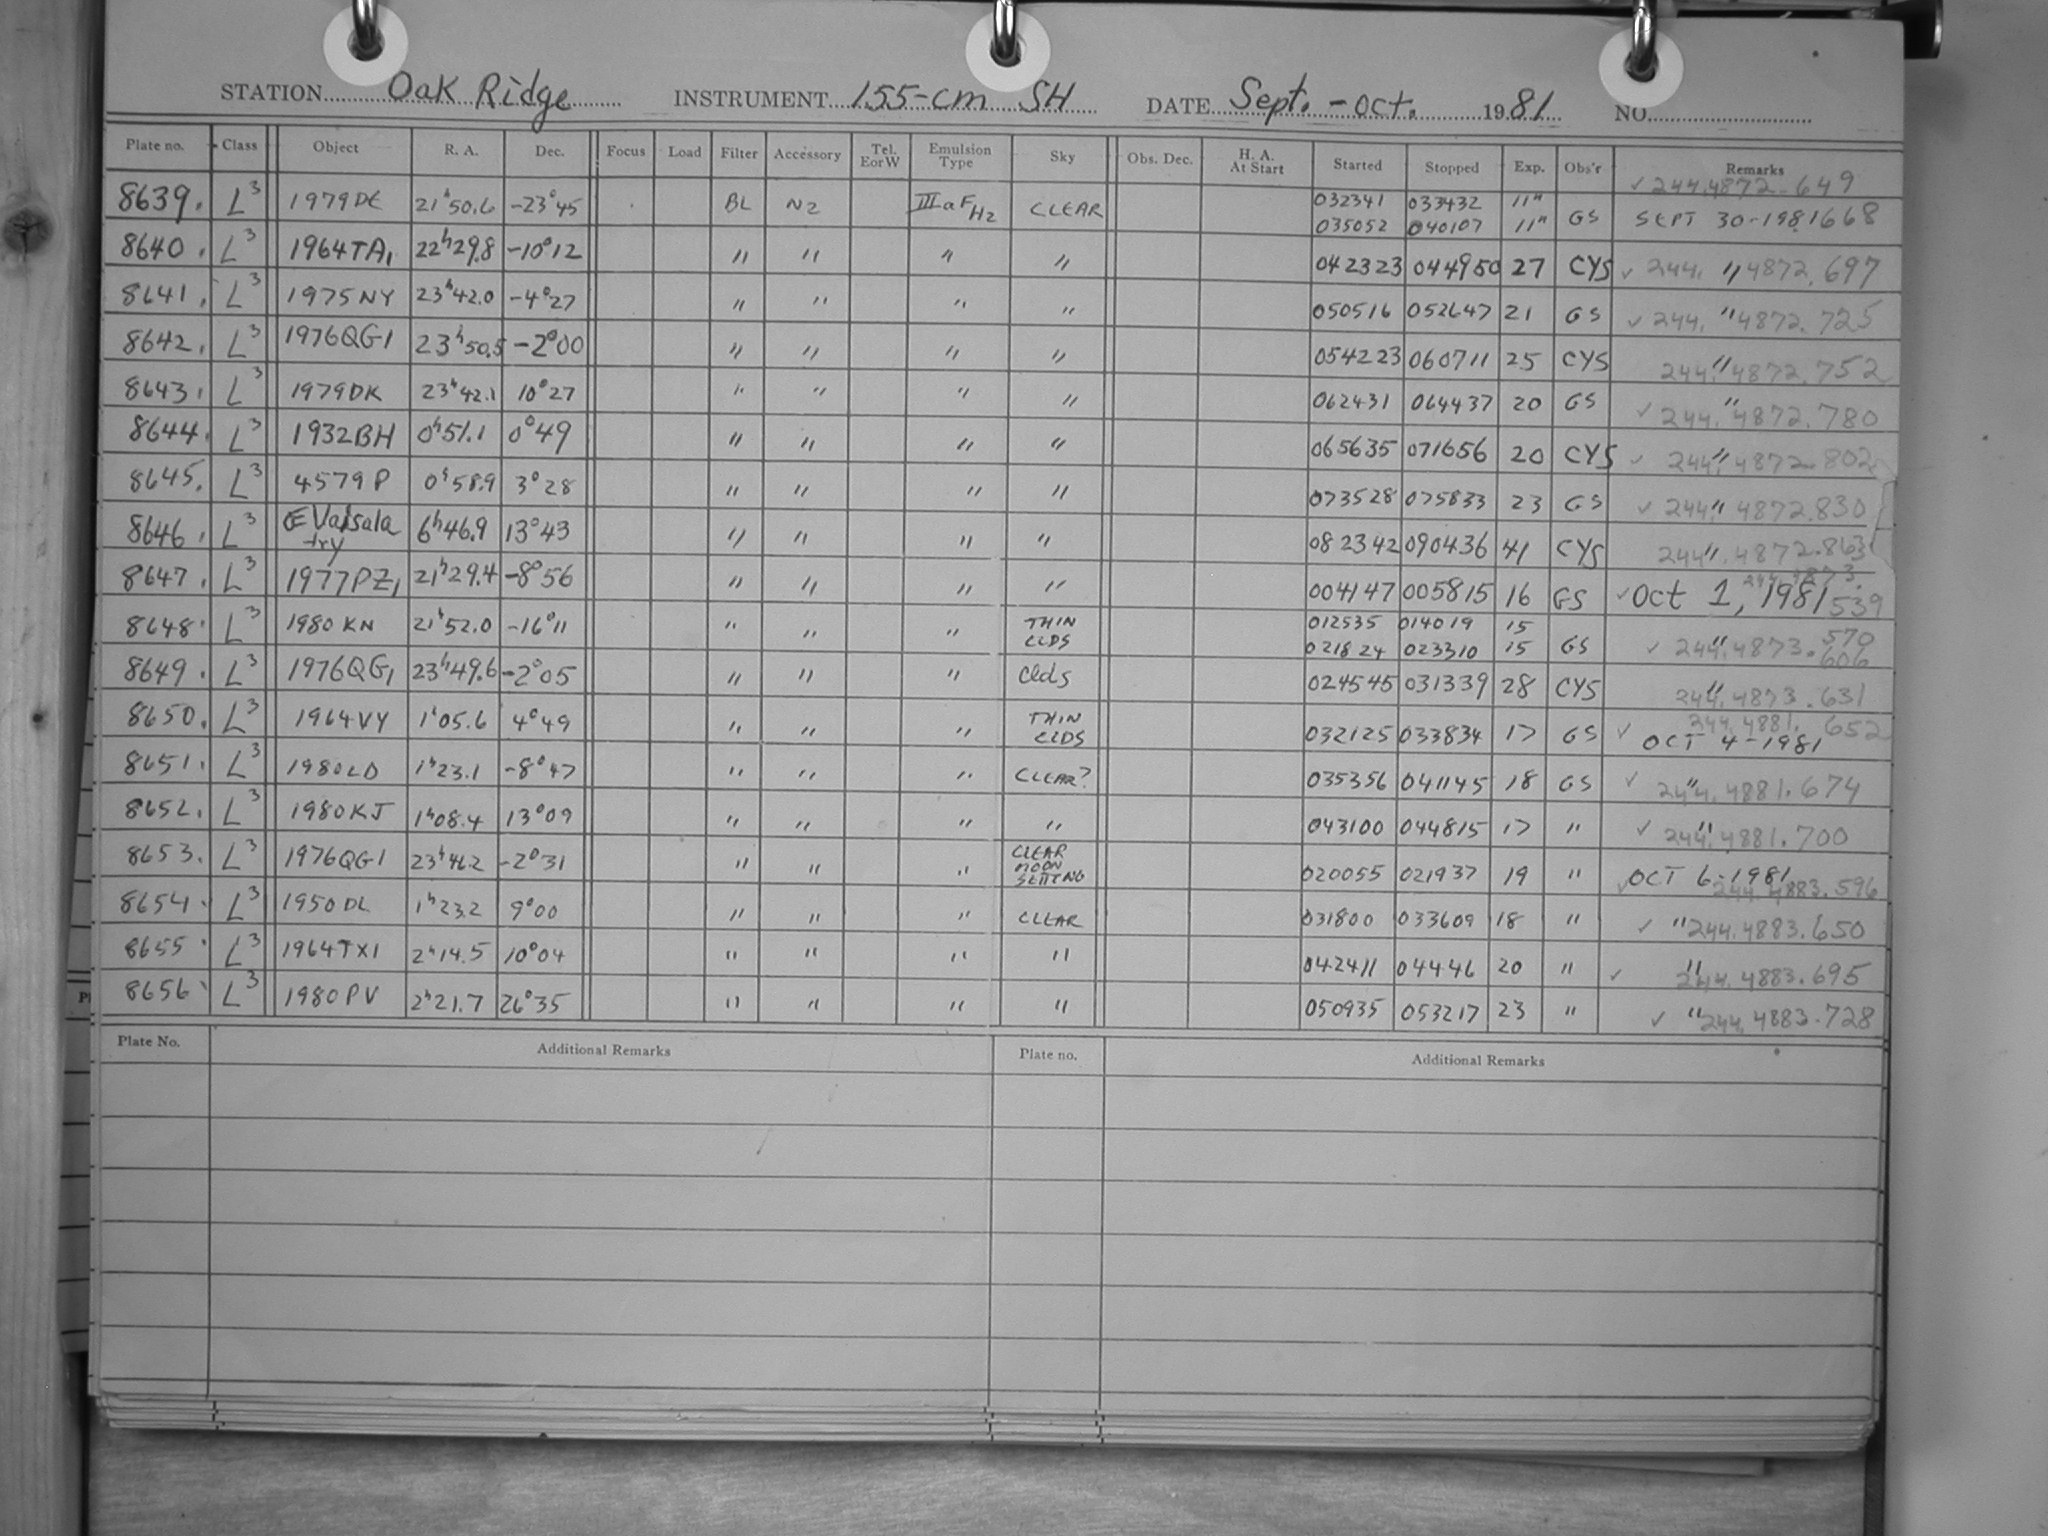 STATION Oak Ridge INSTRUMENT 155-cm SH DATE Sept. - Oct. 1981 NO.
Plate no. Class Object R. A. Dec. Focus Load Filter Accessory Tel. EorW Emulsion Type Sky Obs. Dec. H. A. At Start Started Stopped Exp. Obs'r Remarks
8639. L3 1979DE 21h50.6 -23°45 BL N2 IIIaF H2 CLEAR 032341 033432 11m ✓ 244.4872.649
035052 040107 11m GS SEPT 30-1981 668
8640. L3 1964TA1 22h29.8 -10°12 " " " " 042323 044950 27 CYS ✓ 244. " 4872.697
8641. L3 1975NY 23h42.0 -4°27 " " " " 050516 052647 21 GS ✓ 244. " 4872.725
8642. L3 1976QG1 23h50.5 -2°00 " " " " 054223 060711 25 CYS 244. " 4872.752
8643. L3 1979DK 23h42.1 10°27 " " " " 062431 064437 20 GS ✓ 244. " 4872.780
8644. L3 1932BH 0h51.1 0°49 " " " " 065635 071656 20 CYS ✓ 244. " 4872.802
8645. L3 4579P 0h58.9 3°28 " " " " 073528 075833 23 GS ✓ 244. " 4872.830
8646. L3 Vaisala try 6h46.9 13°43 " " " " 082342 090436 41 CYS 244. " 4872.863
8647. L3 1977PZ1 21h29.4 -8°56 " " " " 004147 005815 16 GS ✓ Oct 1, 1981 244.4873.539
8648. L3 1980KN 21h52.0 -16°11 " " " THIN CLDS 012535 014019 15 570
021824 023310 15 GS ✓ 244. " 4873.606
8649. L3 1976QG1 23h49.6 -2°05 " " " Clds 024545 031339 28 CYS 244. " 4873.631
8650. L3 1964VY 1h05.6 4°49 " " " THIN CLDS 032125 033834 17 GS ✓ 244.4881.652 OCT 4-1981
8651. L3 1980LD 1h23.1 -8°47 " " " CLEAR? 035356 041145 18 GS ✓ 244. " 4881.674
8652. L3 1980KJ 1h08.4 13°09 " " " " 043100 044815 17 " ✓ 244. " 4881.700
8653. L3 1976QG1 23h46.2 -2°31 " " " CLEAR MOON SETTING 020055 021937 19 " OCT 6-1981 ✓ 244.4883.596
8654. L3 1950DL 1h23.2 9°00 " " " CLEAR 031800 033609 18 " ✓ " 244.4883.650
8655 L3 1964TX1 2h14.5 10°04 " " " " 042411 04446 20 " ✓ " 244.4883.695
8656 L3 1980PV 2h21.7 26°35 " " " " 050935 053217 23 " ✓ " 244.4883.728
Plate No. Additional Remarks Plate no. Additional Remarks